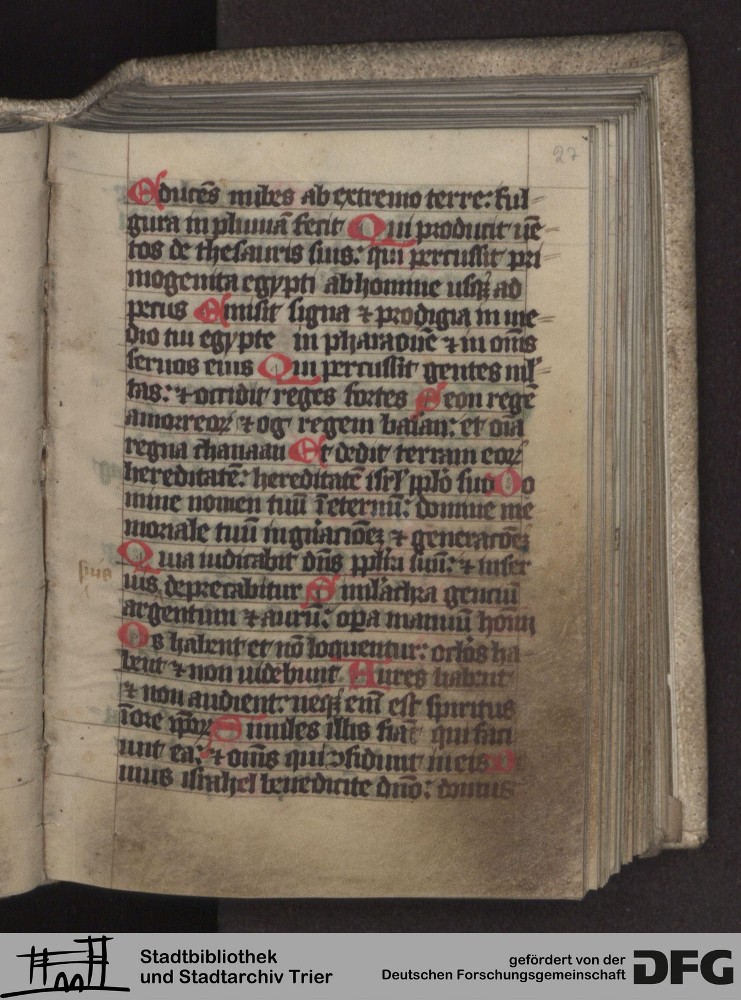 27
Educe͞s nubes ab extremo terre: ful-
gura in pluuiā fecit Qui producit uē-
tos de thesauris suis: qui percussit pri
mogenita egypti ab homine usqꝫ ad
pecus Emisit signa ⁊ prodigia in me-
dio tui egypte in pharaonē ⁊ in om̄s
seruos eius Qui percussit gentes ml'-
tas: ⁊ occidit reges fortes Seon regē
amorreoꝝ ⁊ og regem basan: et oīa
regna chanaan Et dedit terram eoꝝ
hereditatē: hereditatē isrl' pp̄lo suo Do
mine nomen tuū ī eternū: domine me
moriale tuū in
Quia iudicabit dn̄s pplm̄ suū: ⁊ in ser
uis deprecabitur Simulachra genciū
argentum ⁊ aurū: opa manuū hoīm
Os habent et nō loquentur: oclos ha
bent ⁊ non uidebunt Aures habent
⁊ non audient: neqꝫ em̄ est spiritus
ī ore ip̄oꝝ Similes illis fiāt qui faci
unt ea: ⁊ om̄s qui ꝯfidunt in eis Do
mus israhel benedicite dn̄o: domus
Stadtbibliothek
und Stadtarchiv Trier
gefördert von der
Deutschen Forschungsgemeinschaft
DFG